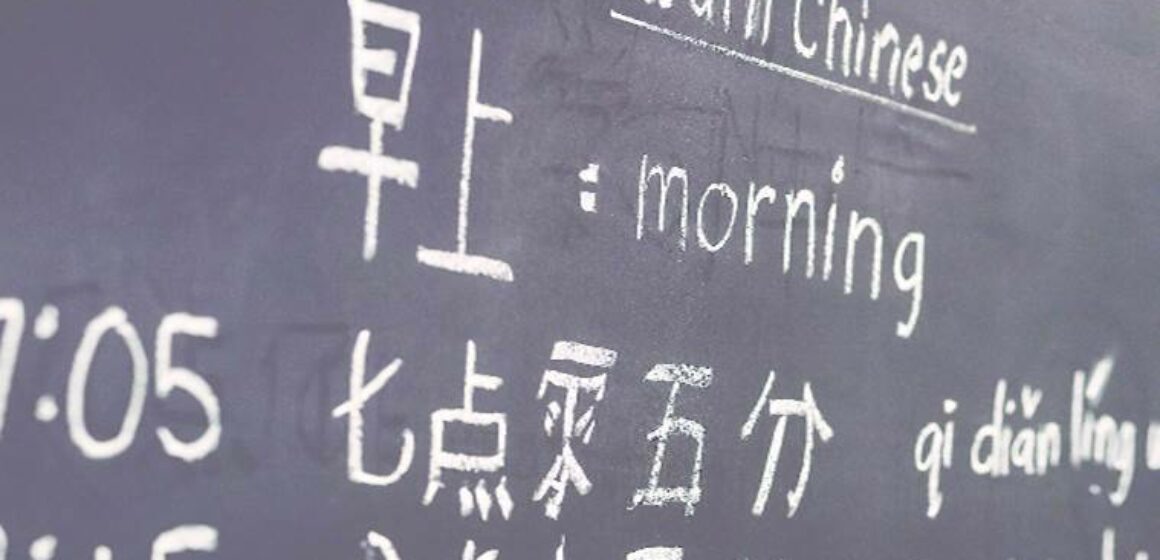 Chinese
早上 : morning
7:05 七点零五分 qi diǎn líng